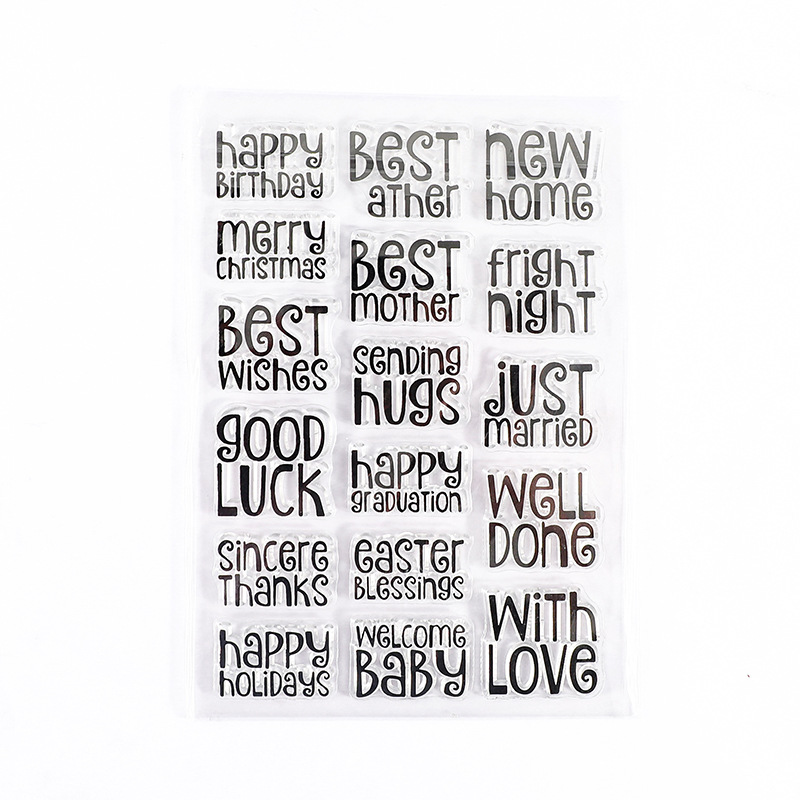 happy
BirthDay
merry
christmas
BEST
Wishes
gOOD
LUCK
sincere
Thanks
happy
holidays
BEST
ather
BEST
mother
sending
hugs
happy
graduation
easter
BLessings
WeLcome
BaBy
new
home
frighT
nighT
jusT
married
WeLL
Done
WiTh
LOVe